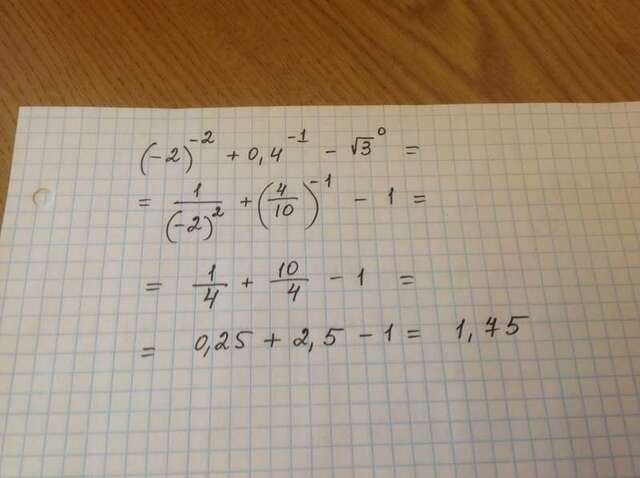 (-2)⁻² + 0,4⁻¹ - √3⁰ =
= 1/(-2)² + (4/10)⁻¹ - 1 =
= 1/4 + 10/4 - 1 =
= 0,25 + 2,5 - 1 = 1,75